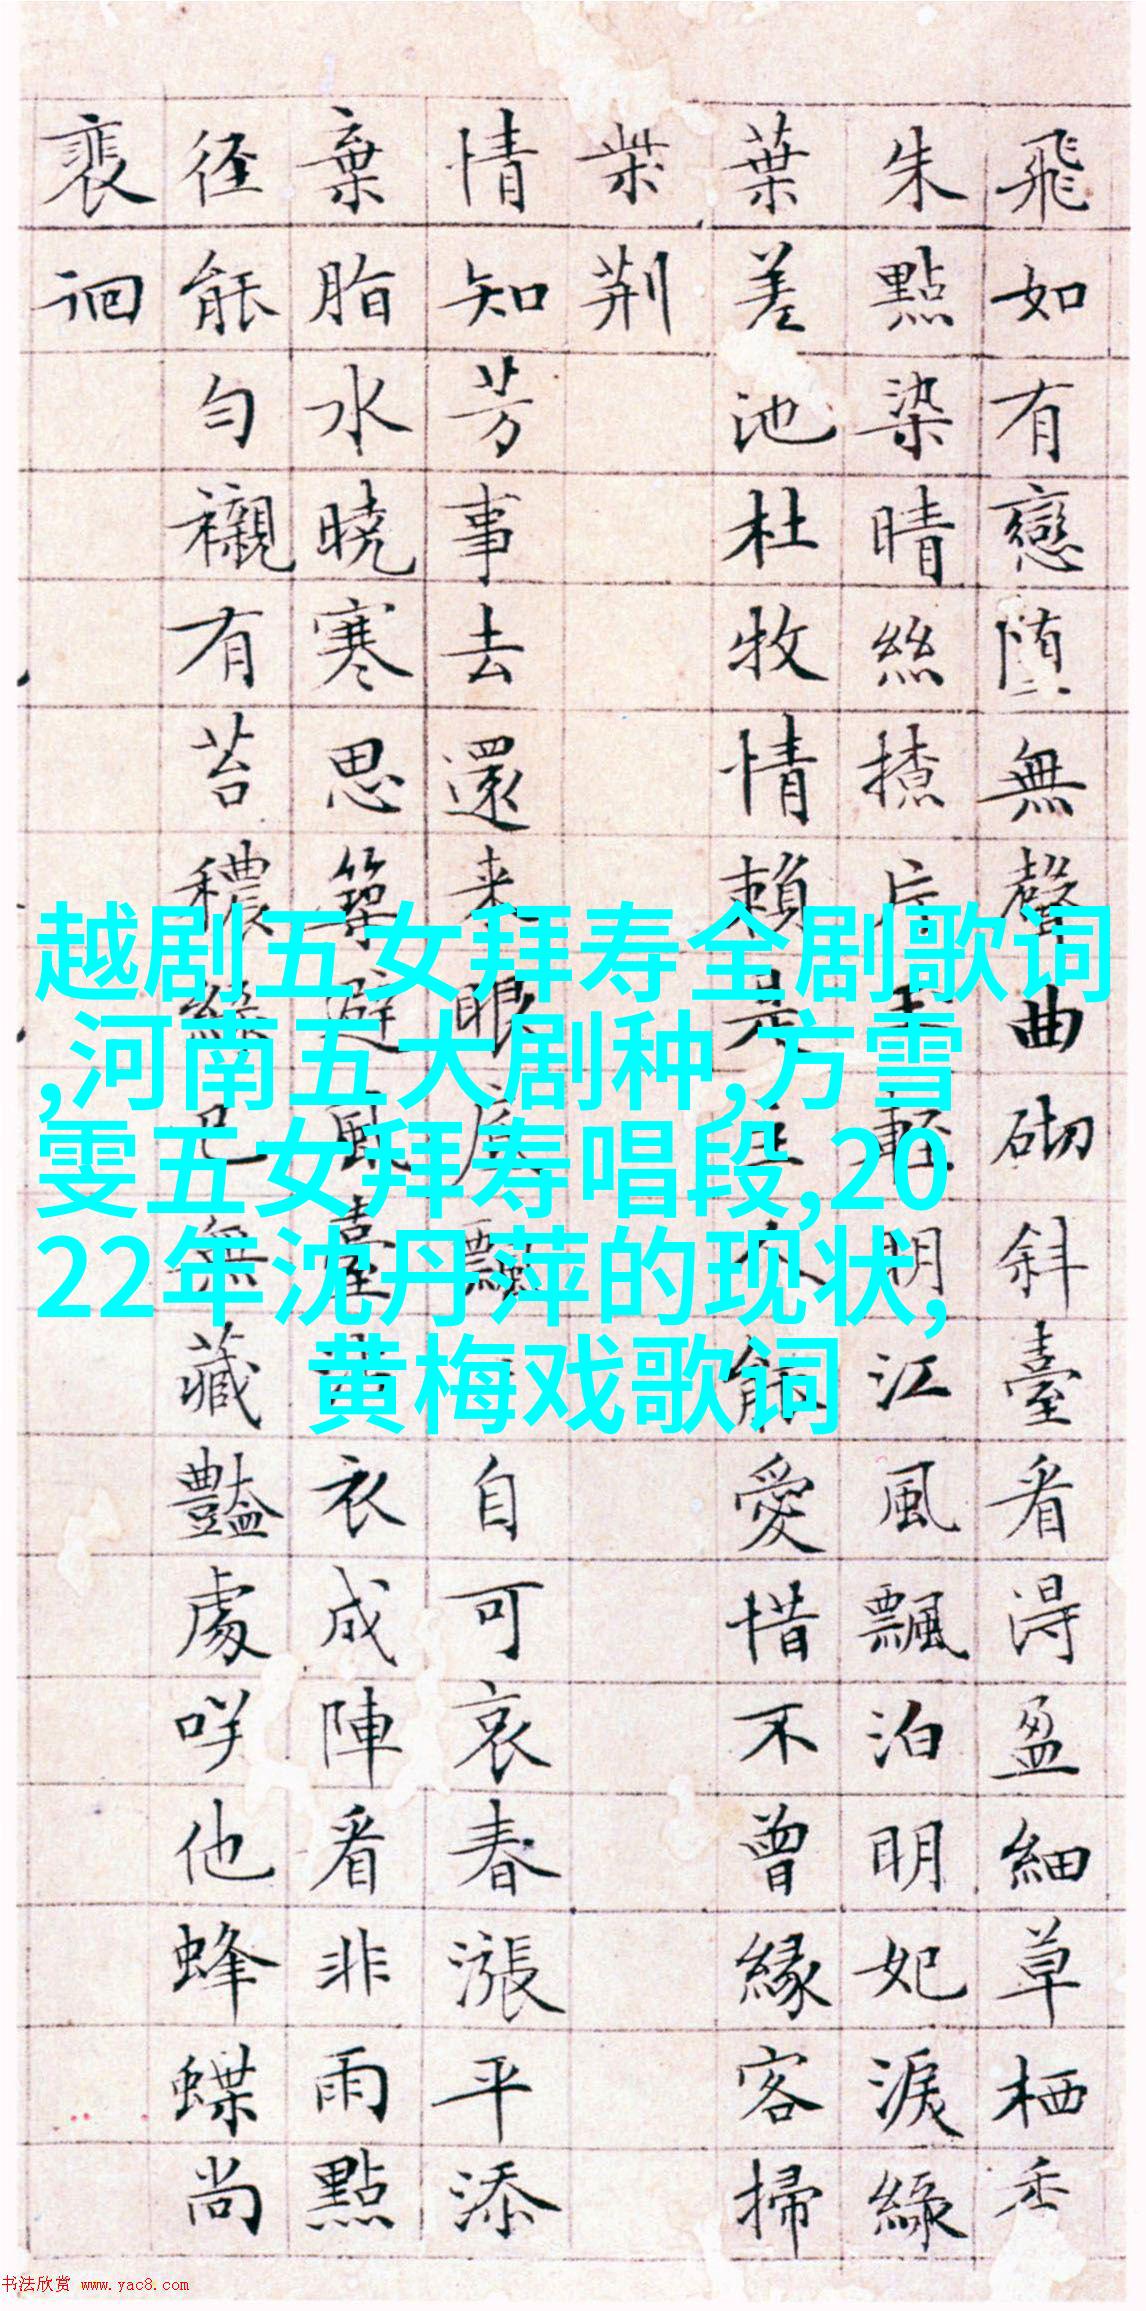 飛如有戀堕無聲曲砌斜臺看淂盈細草栖
朱點染晴絲揸片輕明江風飄泊明妃淚綠
葉差池杜牧情賴是人能愛惜不曾緣客掃
柴荆
情知芳事去還来眼底飄自可哀春漲平添
棄脂水曉寒思築避風臺衣成陣看非雨點
径能勻襯有苔穠綠已無藏豔處咲他蜂蝶尚
裵徊
越剧五女拜寿全剧歌词
,河南五大剧种,方雪
雯五女拜寿唱段,20
22年沈丹萍的现状,
黄梅戏歌词
书法欣赏 www.yac8.com